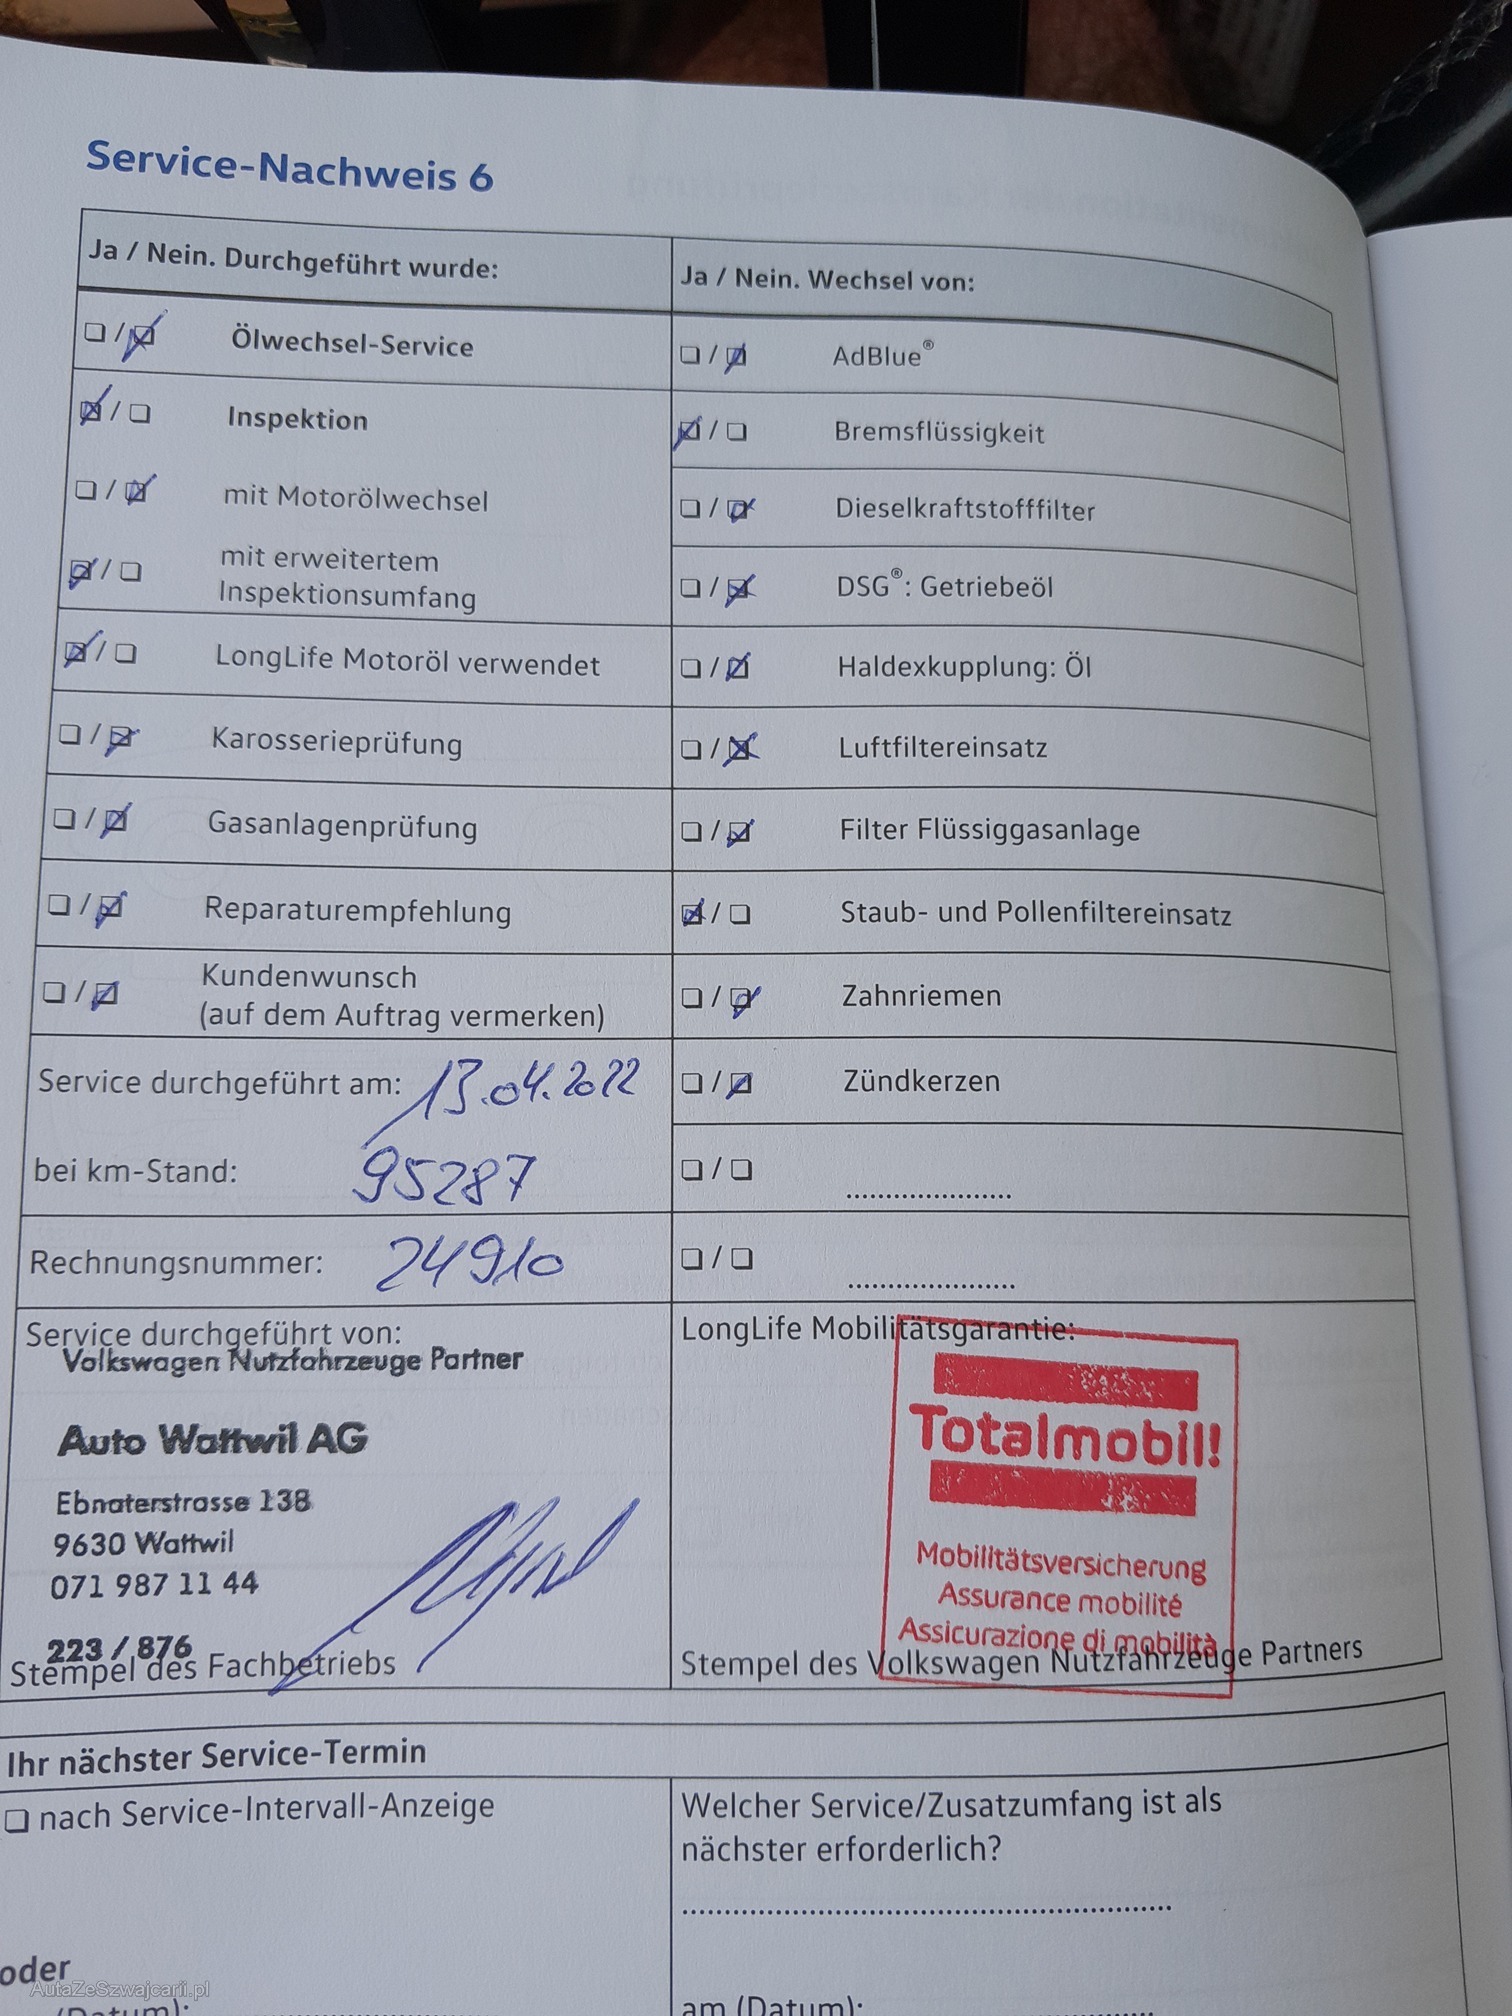 Service-Nachweis 6
Ja / Nein. Durchgeführt wurde:
Ja / Nein. Wechsel von:
Ölwechsel-Service
AdBlue®
Inspektion
Bremsflüssigkeit
mit Motorölwechsel
Dieselkraftstofffilter
mit erweitertem
Inspektionsumfang
DSG®: Getriebeöl
LongLife Motoröl verwendet
Haldexkupplung: Öl
Karosserieprüfung
Luftfiltereinsatz
Gasanlagenprüfung
Filter Flüssiggasanlage
Reparaturempfehlung
Staub- und Pollenfiltereinsatz
Kundenwunsch
(auf dem Auftrag vermerken)
Zahnriemen
Service durchgeführt am: 13.04.2022
Zündkerzen
bei km-Stand: 95287
Rechnungsnummer: 24910
Service durchgeführt von:
Volkswagen Nutzfahrzeuge Partner
Auto Wattwil AG
Ebnaterstrasse 138
9630 Wattwil
071 987 11 44
223 / 876
Stempel des Fachbetriebs
LongLife Mobilitätsgarantie:
Totalmobil!
Mobilitätsversicherung
Assurance mobilité
Assicurazione di mobilità
Stempel des Volkswagen Nutzfahrzeuge Partners
Ihr nächster Service-Termin
nach Service-Intervall-Anzeige
Welcher Service/Zusatzumfang ist als
nächster erforderlich?
oder
AutaZeSzwajcarii.pl
(Datum):
am (Datum):